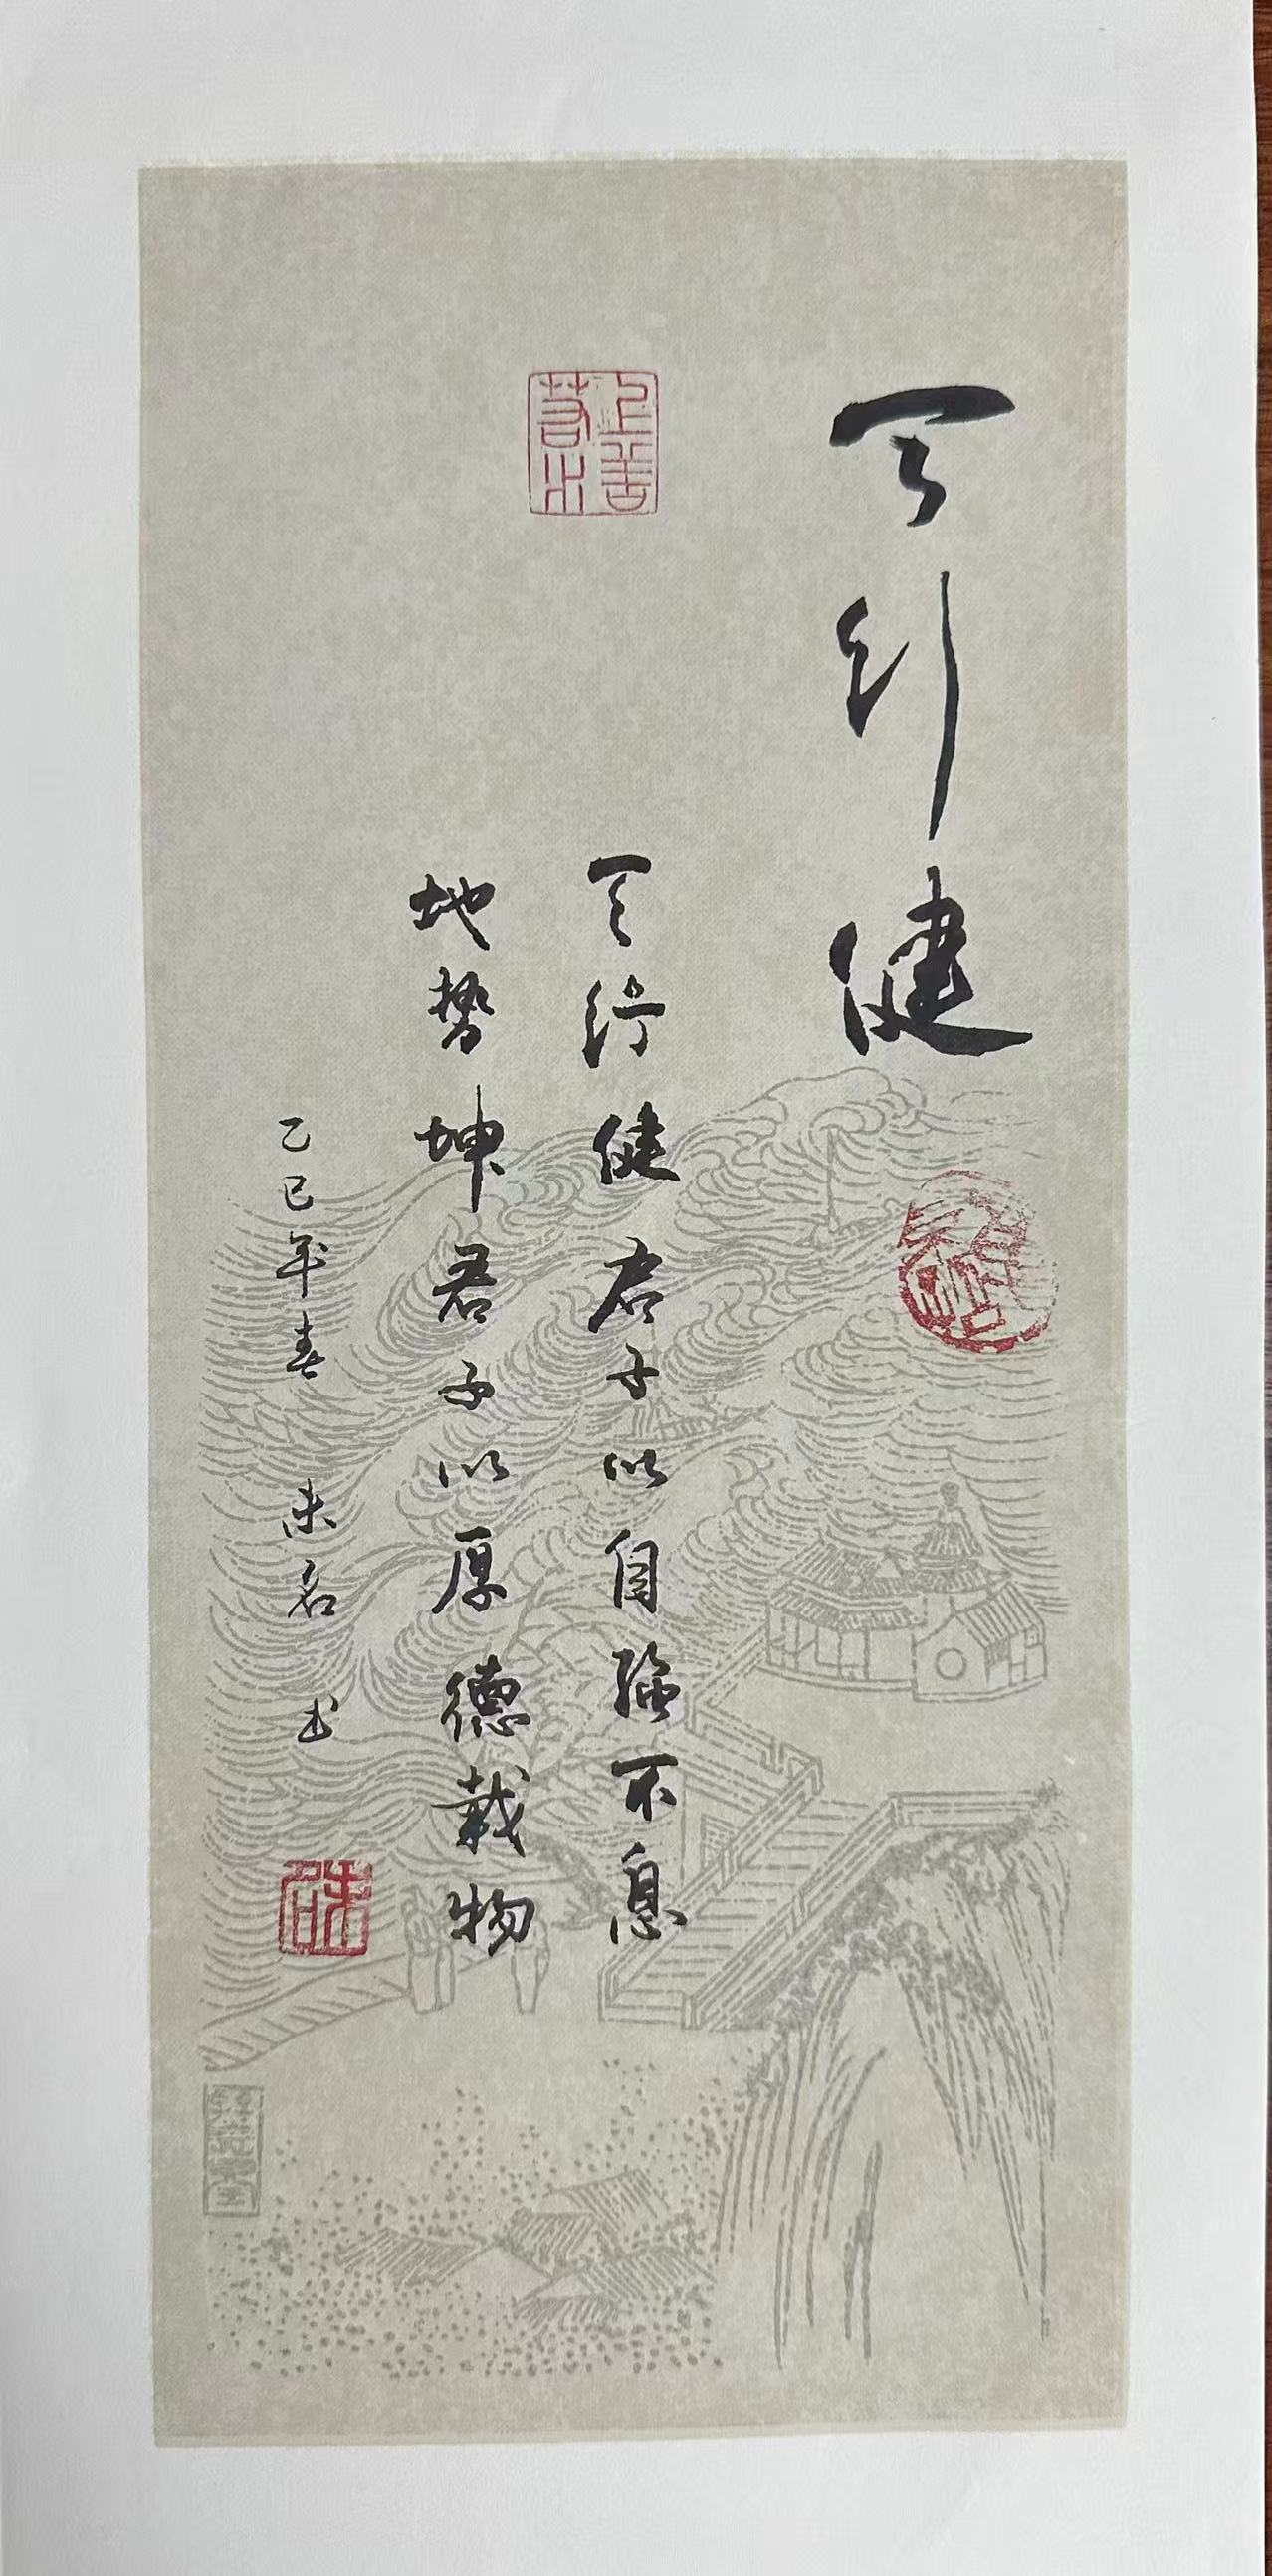 天行健
天行健君子以自强不息
地势坤君子以厚德载物
乙巳年春 未名 书
上善若水